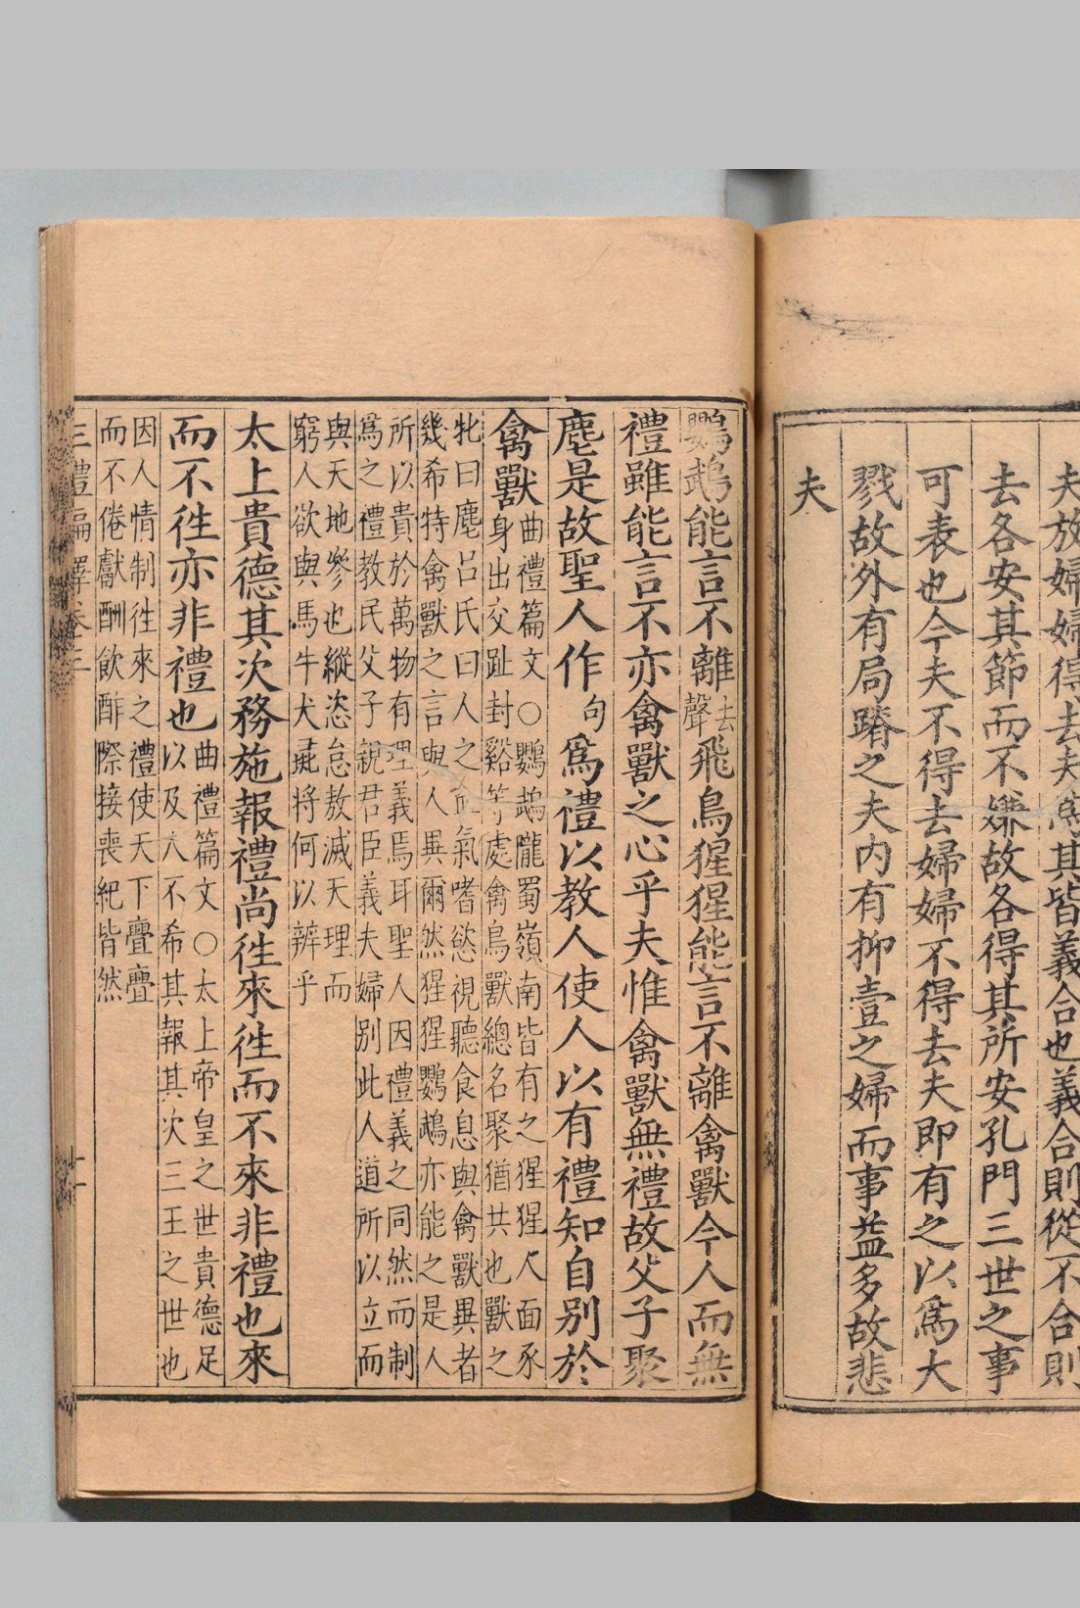 夫放婦婦得去夫爲其皆義合也義合則從不合則
去各安其節而不嫌故各得其所安孔門三世之事
可表也今夫不得去婦婦不得去夫即有之以爲大
戮故外有局蹐之夫内有抑壹之婦而事益多故悲
夫
鸚鵡能言不離去聲飛鳥猩猩能言不離禽獸今人而無
禮雖能言不亦禽獸之心乎夫惟禽獸無禮故父子聚
麀是故聖人作句爲禮以教人使人以有禮知自别於
禽獸曲禮篇文○鸚鵡隴蜀嶺南皆有之猩猩人面豕
身出交趾封谿等處禽鳥獸總名聚猶共也獸之
牝曰麀吕氏曰人之血氣嗜慾視聽食息與禽獸異者
幾希特禽獸之言與人異爾然猩猩鸚鵡亦能之是人
所以貴於萬物有理義焉耳聖人因禮義之同然而制
爲之禮教民父子親君臣義夫婦别此人道所以立而
與天地參也縱恣怠敖滅天理而
窮人欲與馬牛犬彘將何以辨乎
太上貴德其次務施報禮尚徃來徃而不來非禮也來
而不徃亦非禮也曲禮篇文○太上帝皇之世貴德足
以及人不希其報其次三王之世也
因人情制徃來之禮使天下亹亹
而不倦獻酬飲酢際接喪紀皆然
三禮編繹卷三